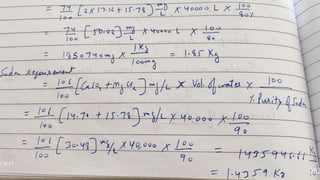 = 74/100 [2 x 17.12 + 15.78] mg/L x 40000 L x 100/80%
= 74/100 [50.02] mg/L x 40000 L x 100/80
= 1850740 mg x 1 Kg/100 mg = 1.85 Kg
Soda requirement
= 106/100 [CaSO4 + MgCl2] mg/L x Vol. of water x 100/% Purity of Soda
= 106/100 [14.70 + 15.78] mg/L x 40,000 x 100/90
= 106/100 [30.48] mg/L x 40,000 x 100/90 = 1435946.66
= 1.4359 Kg